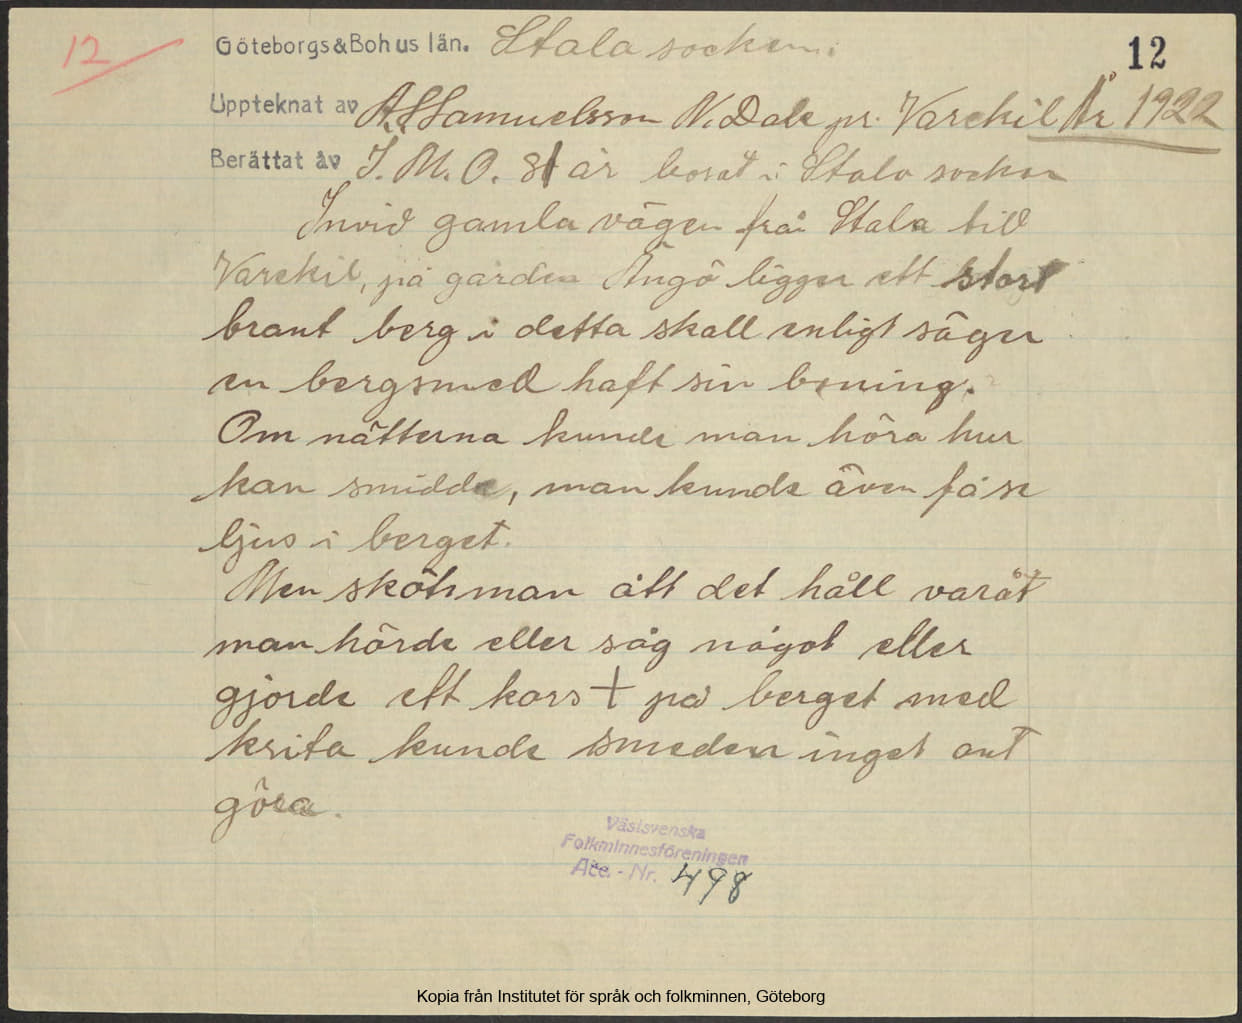 12
Göteborgs & Bohus län. Stala socken.
12
Upptecknat av A. S. Samuelsson N. Dale pr. Varekil År 1922
Berättat av J. M. O. 81 år bosat i Stala socken
Invid gamla vägen från Stala till
Varekil, på garden Ängö ligger ett stort
brant berg i detta skall enligt sägen
en bergsmed haft sin boning.
Om nätterna kunde man höra hur
han smidde, man kunde även få se
ljus i berget.
Men sköt man ått det håll varåt
man hörde eller såg något eller
gjorde ett kors + på berget med
krita kunde smeden inget ont
göra.
Västsvenska
Folkminnesföreningen
Acc. - Nr. 498
Kopia från Institutet för språk och folkminnen, Göteborg